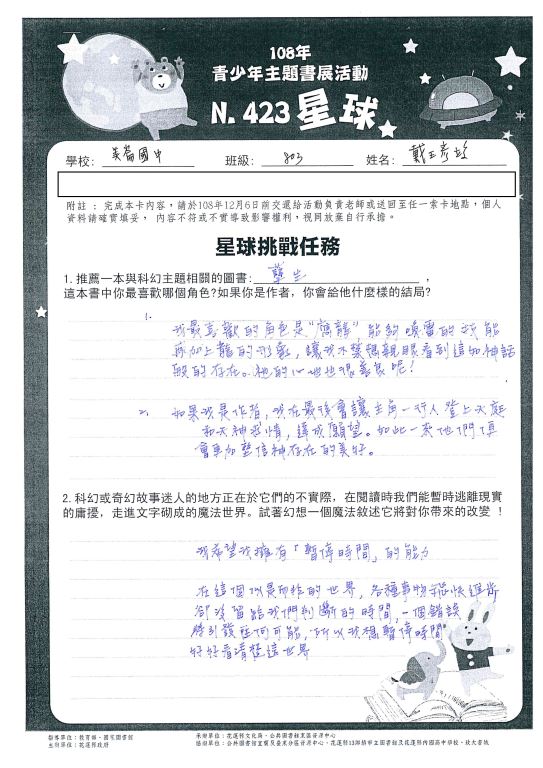 108年
青少年主題書展活動
N. 423 星球
學校: 美崙國中 班級: 803 姓名: 戴
附註 : 完成本卡內容,請於108年12月6日前交還給活動負責老師或送回至任一索卡地點,個人
資料請確實填妥, 內容不符或不實導致影響權利,視同放棄自行承擔。
星球挑戰任務
1. 推薦一本與科幻主題相關的圖書: 孽生 ,
這本書中你最喜歡哪個角色?如果你是作者,你會給他什麼樣的結局?
1.
我最喜歡的角色是"龍" 能夠喚靈的技能
再加上龍的形象,讓我不禁想親眼看到這如神話
般的存在。牠的心地也很善良呢!
2. 如果我是作者,我在最後會讓主角一行人登上天庭
和天神求情,達成願望。如此一來他們便
會更加堅信神存在的美好。
2. 科幻或奇幻故事迷人的地方正在於它們的不實際,在閱讀時我們能暫時逃離現實
的庸擾,走進文字砌成的魔法世界。試著幻想一個魔法敘述它將對你帶來的改變 !
我希望我擁有「暫停時間」的能力
在這個似是而非的世界,各種事物飛快進步
卻沒留給我們判斷的時間,一個錯誤
將引發任何可能,所以我想暫停時間
好好看清楚這世界
指導單位:教育部、國家圖書館
主辦單位:花蓮縣政府
承辦單位:花蓮縣文化局、公共圖書館東區資源中心
協辦單位:公共圖書館宜蘭及臺東分區資源中心、花蓮縣13鄉鎮市立圖書館及花蓮縣內國高中學校、政大書城